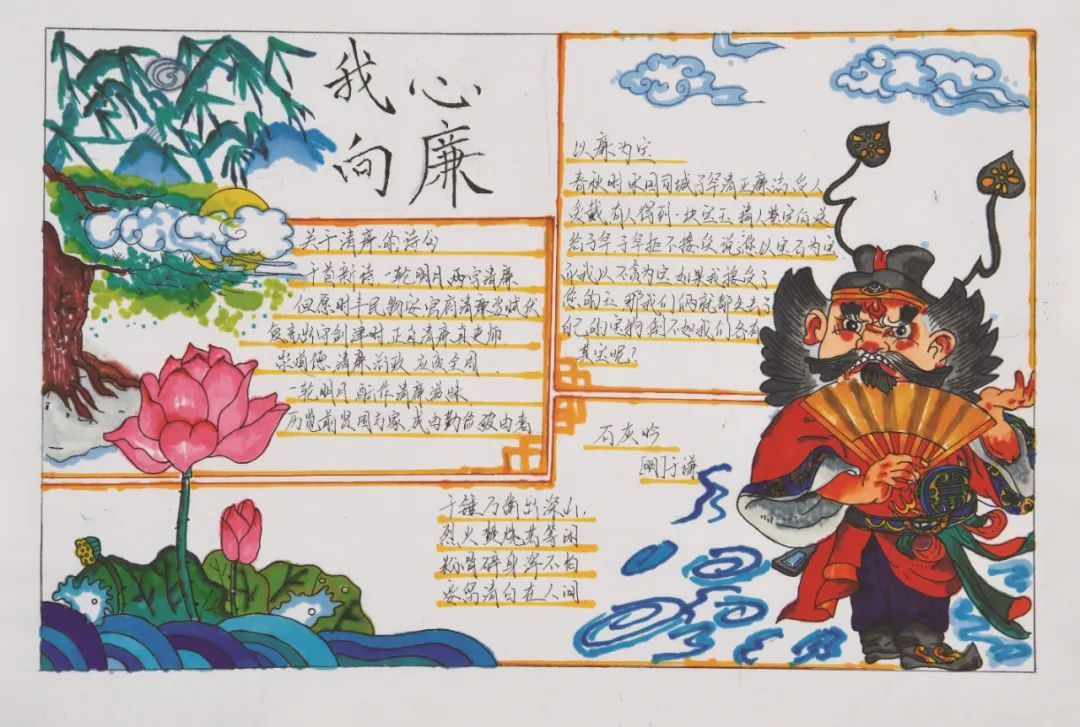 我心
向廉
关于清廉的诗句
十首新诗一轮明月，两字清廉
但愿时丰民物安官府清廉盗贼
复高出守剑津时，正自清廉真吏师
崇道德，清廉
一轮明月，配作清廉滋味
历览前贤国与家，成由勤俭破由奢
以廉为宝
春秋时宋国司城子罕清正廉洁，受人
爱戴，有人得到一块宝玉，请人鉴定后送
给子罕，子罕拒不接受，说：您以宝石为宝
而我以不贪为宝，如果我接受了
您的玉，那我们俩就都失去了
自己的宝物，倒不如我们各有
其宝呢？
石灰吟
[明]于谦
千锤万凿出深山，
烈火焚烧若等闲
粉骨碎身浑不怕
要留清白在人间